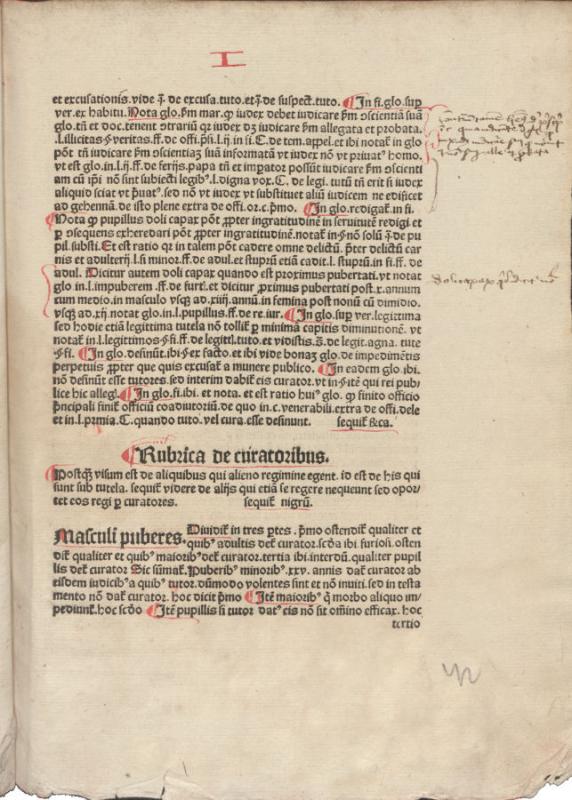 I
et excusationis. vide q̄. de excusa. tuto. et.q̄. de suspect. tuto. ¶In fi. glo. sup̱
ver. ex habitu. Nota glo. ẜm mar. ꝙ iudex debet iudicare ẜm ɔscientiā suā
glo. tñ et doc. tenent ɔtrariū qꝛ iudex dꝫ iudicare ẜm allegata et probata.
.l. illicitas.§. veritas. ff. de offi. p̄si. l. ij. in fi. C. de tem. appel. et ibi notaꝉ in glo
pōt tñ iudicare ẜm scientiaꝫ suā informatā vt iudex nō vt priuatꝰ homo.
vt est glo. in. l. ij. ff. de ferijs. papa tñ et imꝑator possūt iudicare ẜm ɔscienti
am cū ip̄i nō sint subiecti legibꝰ. l. digna vox. C. de legi. tutū tñ erit si iudex
aliquid sciat vt p̄uatꝰ. sed nō vt iudex vt substituet aliū iudicem ne edificet
ad gehennā. de isto plene extra de offi. or. c. pmo. ¶In glo. redigaꝉ. in fi.
Nota ꝙ pupillus doli capax pōt ꝓpter ingratitudinē in seruitutē redigi et
ꝑ ɔsequens exheredari pōt ꝓpter ingratitudinē. notaꝉ in.§. nō solū q̄. de pu
pil. substi. Et est ratio qꝛ in talem pōt cadere omne delictū. p̄ter delictū car
nis et adulterij. l. si minor. ff. de adul. et stuprū etiā cadit. l. stuprū. in fi. ff. de
adul. Dicitur autem doli capax quando est proximus pubertati. vt notat
glo in. l. impuberem. ff. de furt. et dicitur ꝓximus pubertati post.x. annum
cum medio. in masculo vsqꝫ ad.xiiij. annū. in femina post nonū cū dimidio.
vsqꝫ ad.xij. notat glo. in. l. pupillus. ff. de re. iur. ¶In glo. sup ver. legittima
sed hodie etiā legittima tutela nō tolliꝉ ꝑ minimā capitis diminutionē. vt
notaꝉ in. l. legittimos.§. fi. ff. de legiti. tuto. et vidistis. s̄. de legit. agna. tute
§. fi. ¶In glo. desinūt. ibi.§. ex facto. et ibi vide bonaꝫ glo. de impedimētis
perpetuis ꝓpter que quis excusaꝉ a munere publico. ¶In eadem glo. ibi.
nō desinūt esse tutores. sed interim dabiꝉ eis curator. vt in.§. itē qui rei pub/
lice hic allegꝉ. ¶In glo. fi. ibi. et nota. et est ratio huiꝰ glo. ꝙ finito officio
p̄ncipali finiꝉ officiū coadiutoriū. de quo in. c. venerabili. extra de offi. dele
et in. l. prmia. C. quando tuto. vel cura. esse desinunt. sequiꝉ &ca.
¶Rubrica de curatoribus.
Postqꝫ visum est de aliquibus qui alieno regimine egent. id est de his qui
sunt sub tutela. sequiꝉ videre de alijs qui etiā se regere nequeunt sed opor/
tet eos regi ꝑ curatores. sequiꝉ nigrū.
Masculi puberes. Diuidiꝉ in tres ꝑtes. pmo ostendiꝉ qualiter et
quibꝰ adultis deꝉ curator. scd̄a ibi. furiosi. osten
diꝉ qualiter et quibꝰ maioribꝰ deꝉ curator. tertia ibi. interdū. qualiter pupil
lis deꝉ curator Sic sūmaꝉ. Puberibꝰ minoribꝰ.xxv. annis daꝉ curator ab
eisdem iudicibꝰ a quibꝰ tutor. dūmodo volentes sint et nō inuiti. sed in testa
mento nō daꝉ curator. hoc dicit pmo ¶Itē maioribꝰ q̄ morbo aliquo im/
pediunꝉ. hoc scd̄o ¶Itē pupillis si tutor datꝰ eis nō sit om̄ino efficax. hoc
tertio